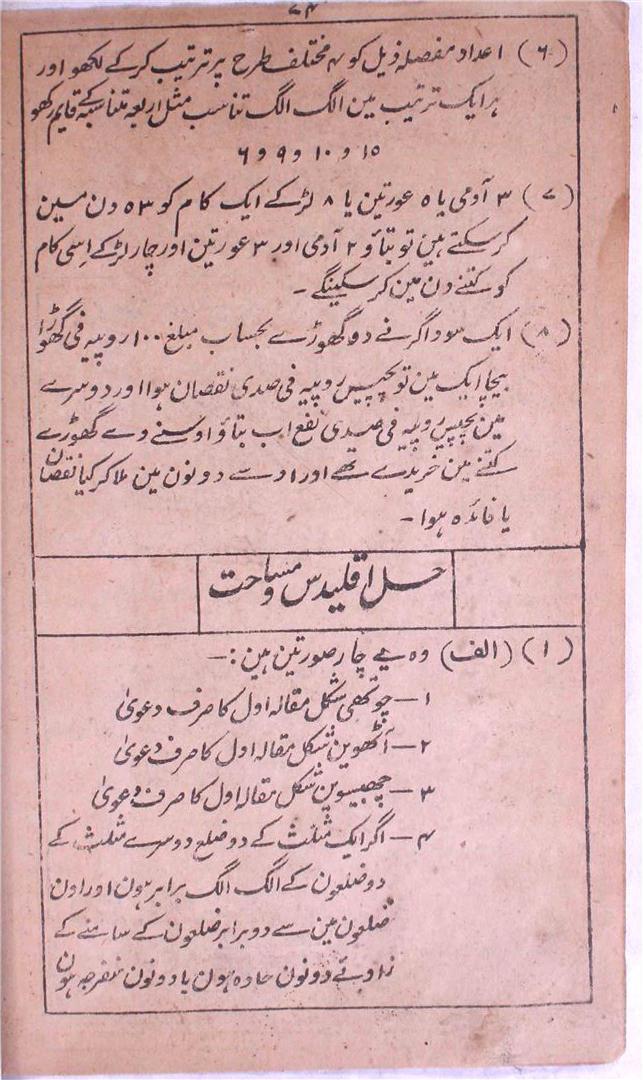 ۷۴
(۶) اعداد مفصلہ ذیل کو ۴ مختلف طرح پر ترتیب کرکے لکھو اور
ہر ایک ترتیب مین الگ الگ تناسب مثل اربعہ متناسبہ کے قایم رکھو
۱۵ و ۱۰ و ۹ و ۶
(۷) ۳ آدمی یا ۵ عورتین یا ۸ لڑکے ایک کام کو ۵۳ دن مین
کرسکتے ہین تو بتاؤ ۲ آدمی اور ۳ عورتین اور چار لڑکے اِسی کام
کو کتنے دن مین کرسکینگے ۔
(۸) ایک سوداگر نے دو گھوڑے بحساب مبلغ ۱۰۰ روپیہ فی گھوڑا
بیچا ایک مین تو پچیس روپیہ فی صدی نقصان ہوا اور دوسرے
مین پچیس روپیہ فی صیدی نفع اب بتاؤ اوسنے وے گھوڑے
کتنے مین خریدے تھے اور اوسے دونون مین ملا کر کیا نقصان
یا فائدہ ہوا ۔
حل اقلیدس و مساحت
(۱) (الف) وہ یے چار صورتین ہین :۔
۱ — چوتھی شکل مقالہ اول کا صرف دعویٰ
۲ — آٹھوین شکل مقالہ اول کا صرف دعویٰ
۳ — چھبیسوین شکل مقالہ اول کا صرف دعویٰ
۴ — اگر ایک مثلث کے دو ضلع دوسرے مثلث کے
دو ضلعون کے الگ الگ برابر ہون اور اون
ضلعون مین سے دو برابر ضلعون کے سامنے کے
زاویے دونون حادہ ہون یا دونون منفرجہ ہون